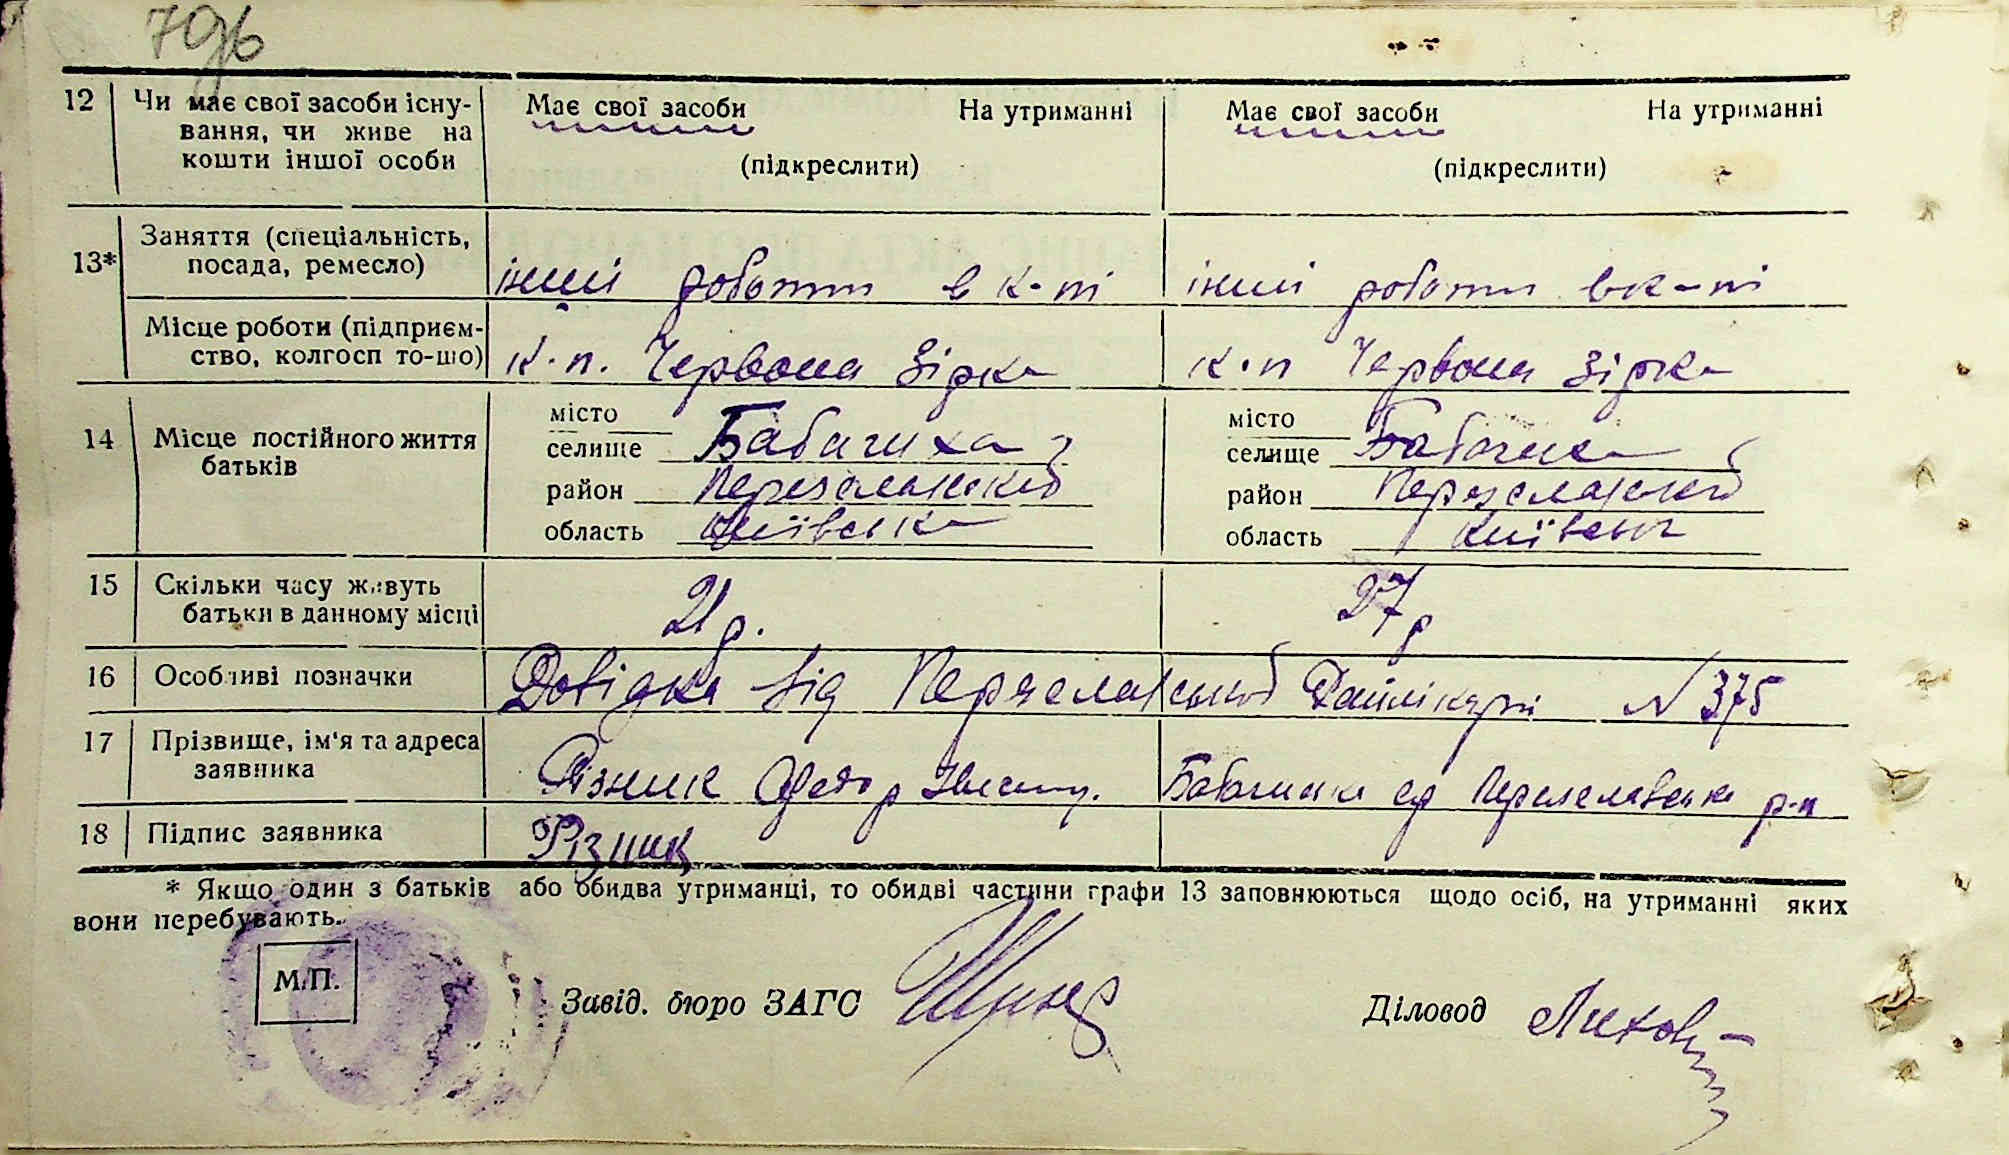 12 Чи має свої засоби існу- Має свої засоби На утриманні Має свої засоби На утриманні
вання, чи живе на
кошти іншої особи (підкреслити) (підкреслити)
Заняття (спеціальність,
13* посада, ремесло) інші роботи в к-пі інші роботи в к-пі
Місце роботи (підприєм-
ство, колгосп то-що) к.п. Червона Зірка к.п Червона Зірка
місто місто
14 Місце постійного життя селище Бабачиха селище Бабачиха
батьків район Переяславський район Переяславський
область Київська область Київська
15 Скільки часу живуть
батьки в данному місці 21 р. 27 р
16 Особливі позначки Довідка від Переяславської Райлікарні N 375
17 Прізвище, ім'я та адреса
заявника Різник Федор Бабачиха Переяславська р-н
18 Підпис заявника Різник
* Якщо один з батьків або обидва утриманці, то обидві частини графи 13 заповнюються щодо осіб, на утриманні яких
вони перебувають.
М.П.
Завід. бюро ЗАГС Діловод